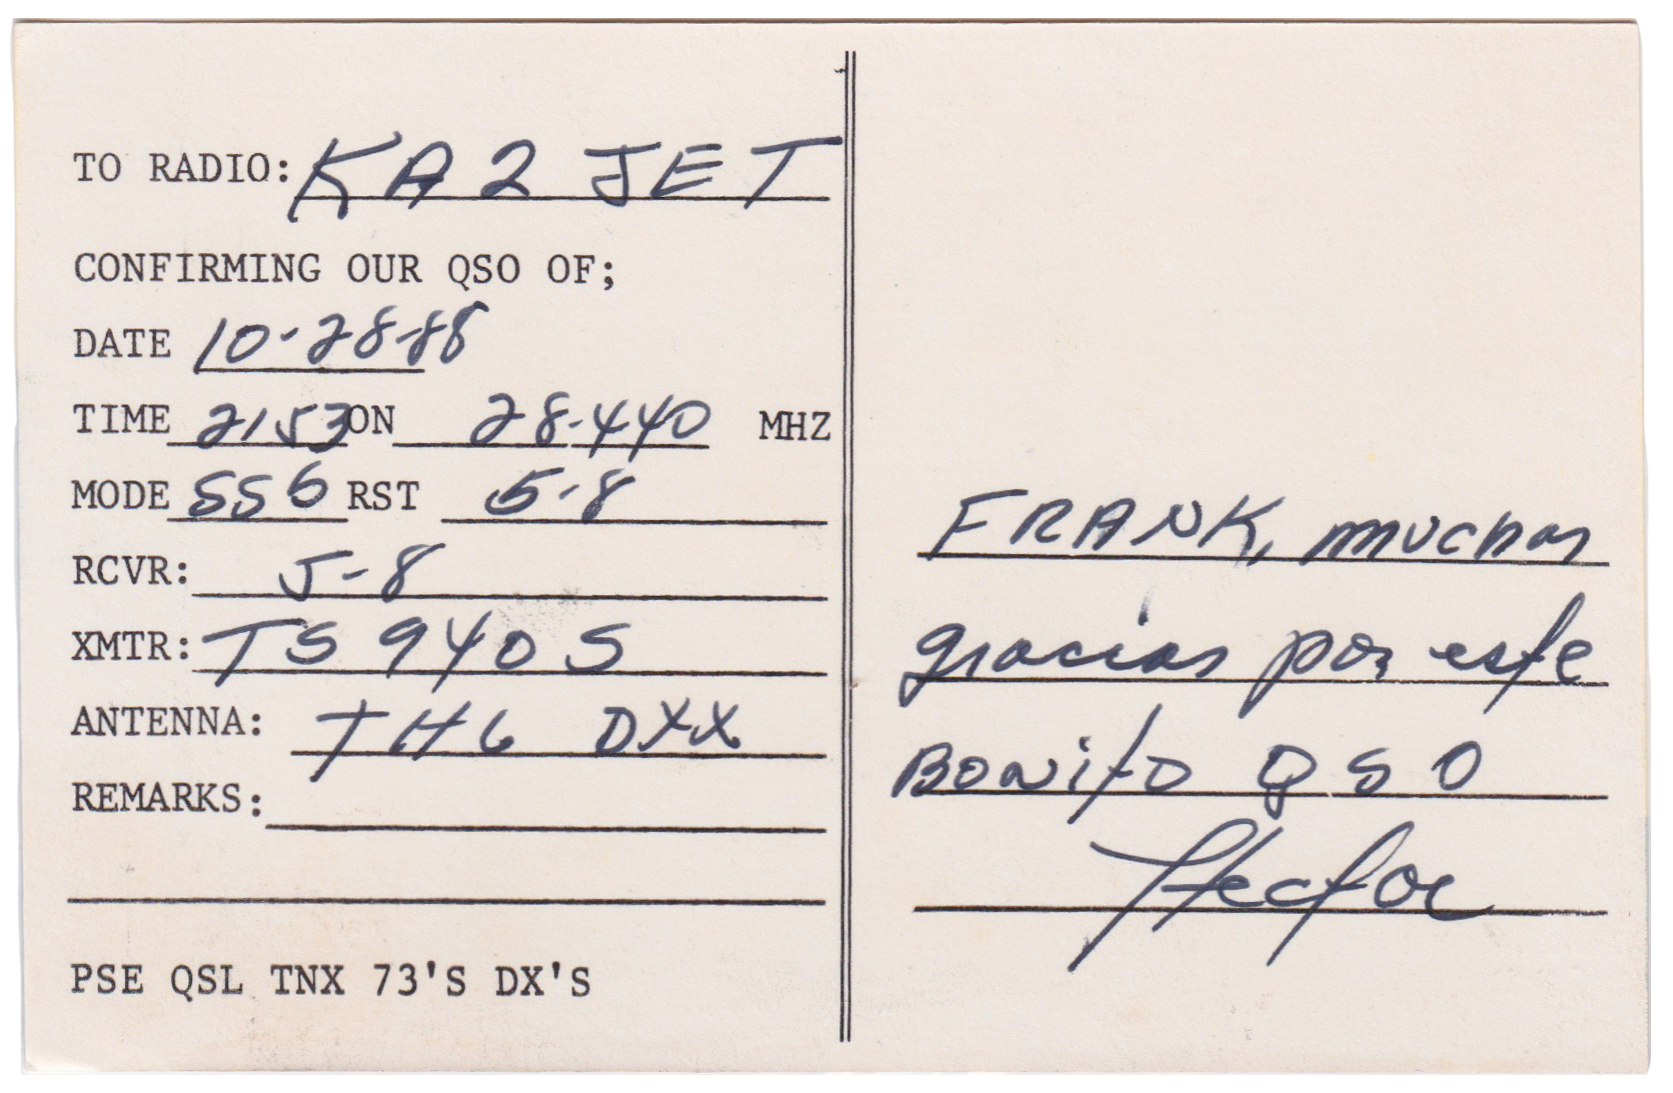 TO RADIO: KA2 JET
CONFIRMING OUR QSO OF;
DATE 10-28-88
TIME 2153 ON 28.440 MHZ
MODE SSB RST 5-8
RCVR: 5-8
XMTR: TS 940S
ANTENNA: TH6 DXX
REMARKS:
PSE QSL TNX 73'S DX'S
FRANK, muchas
gracias por este
Bonito QSO
Hector